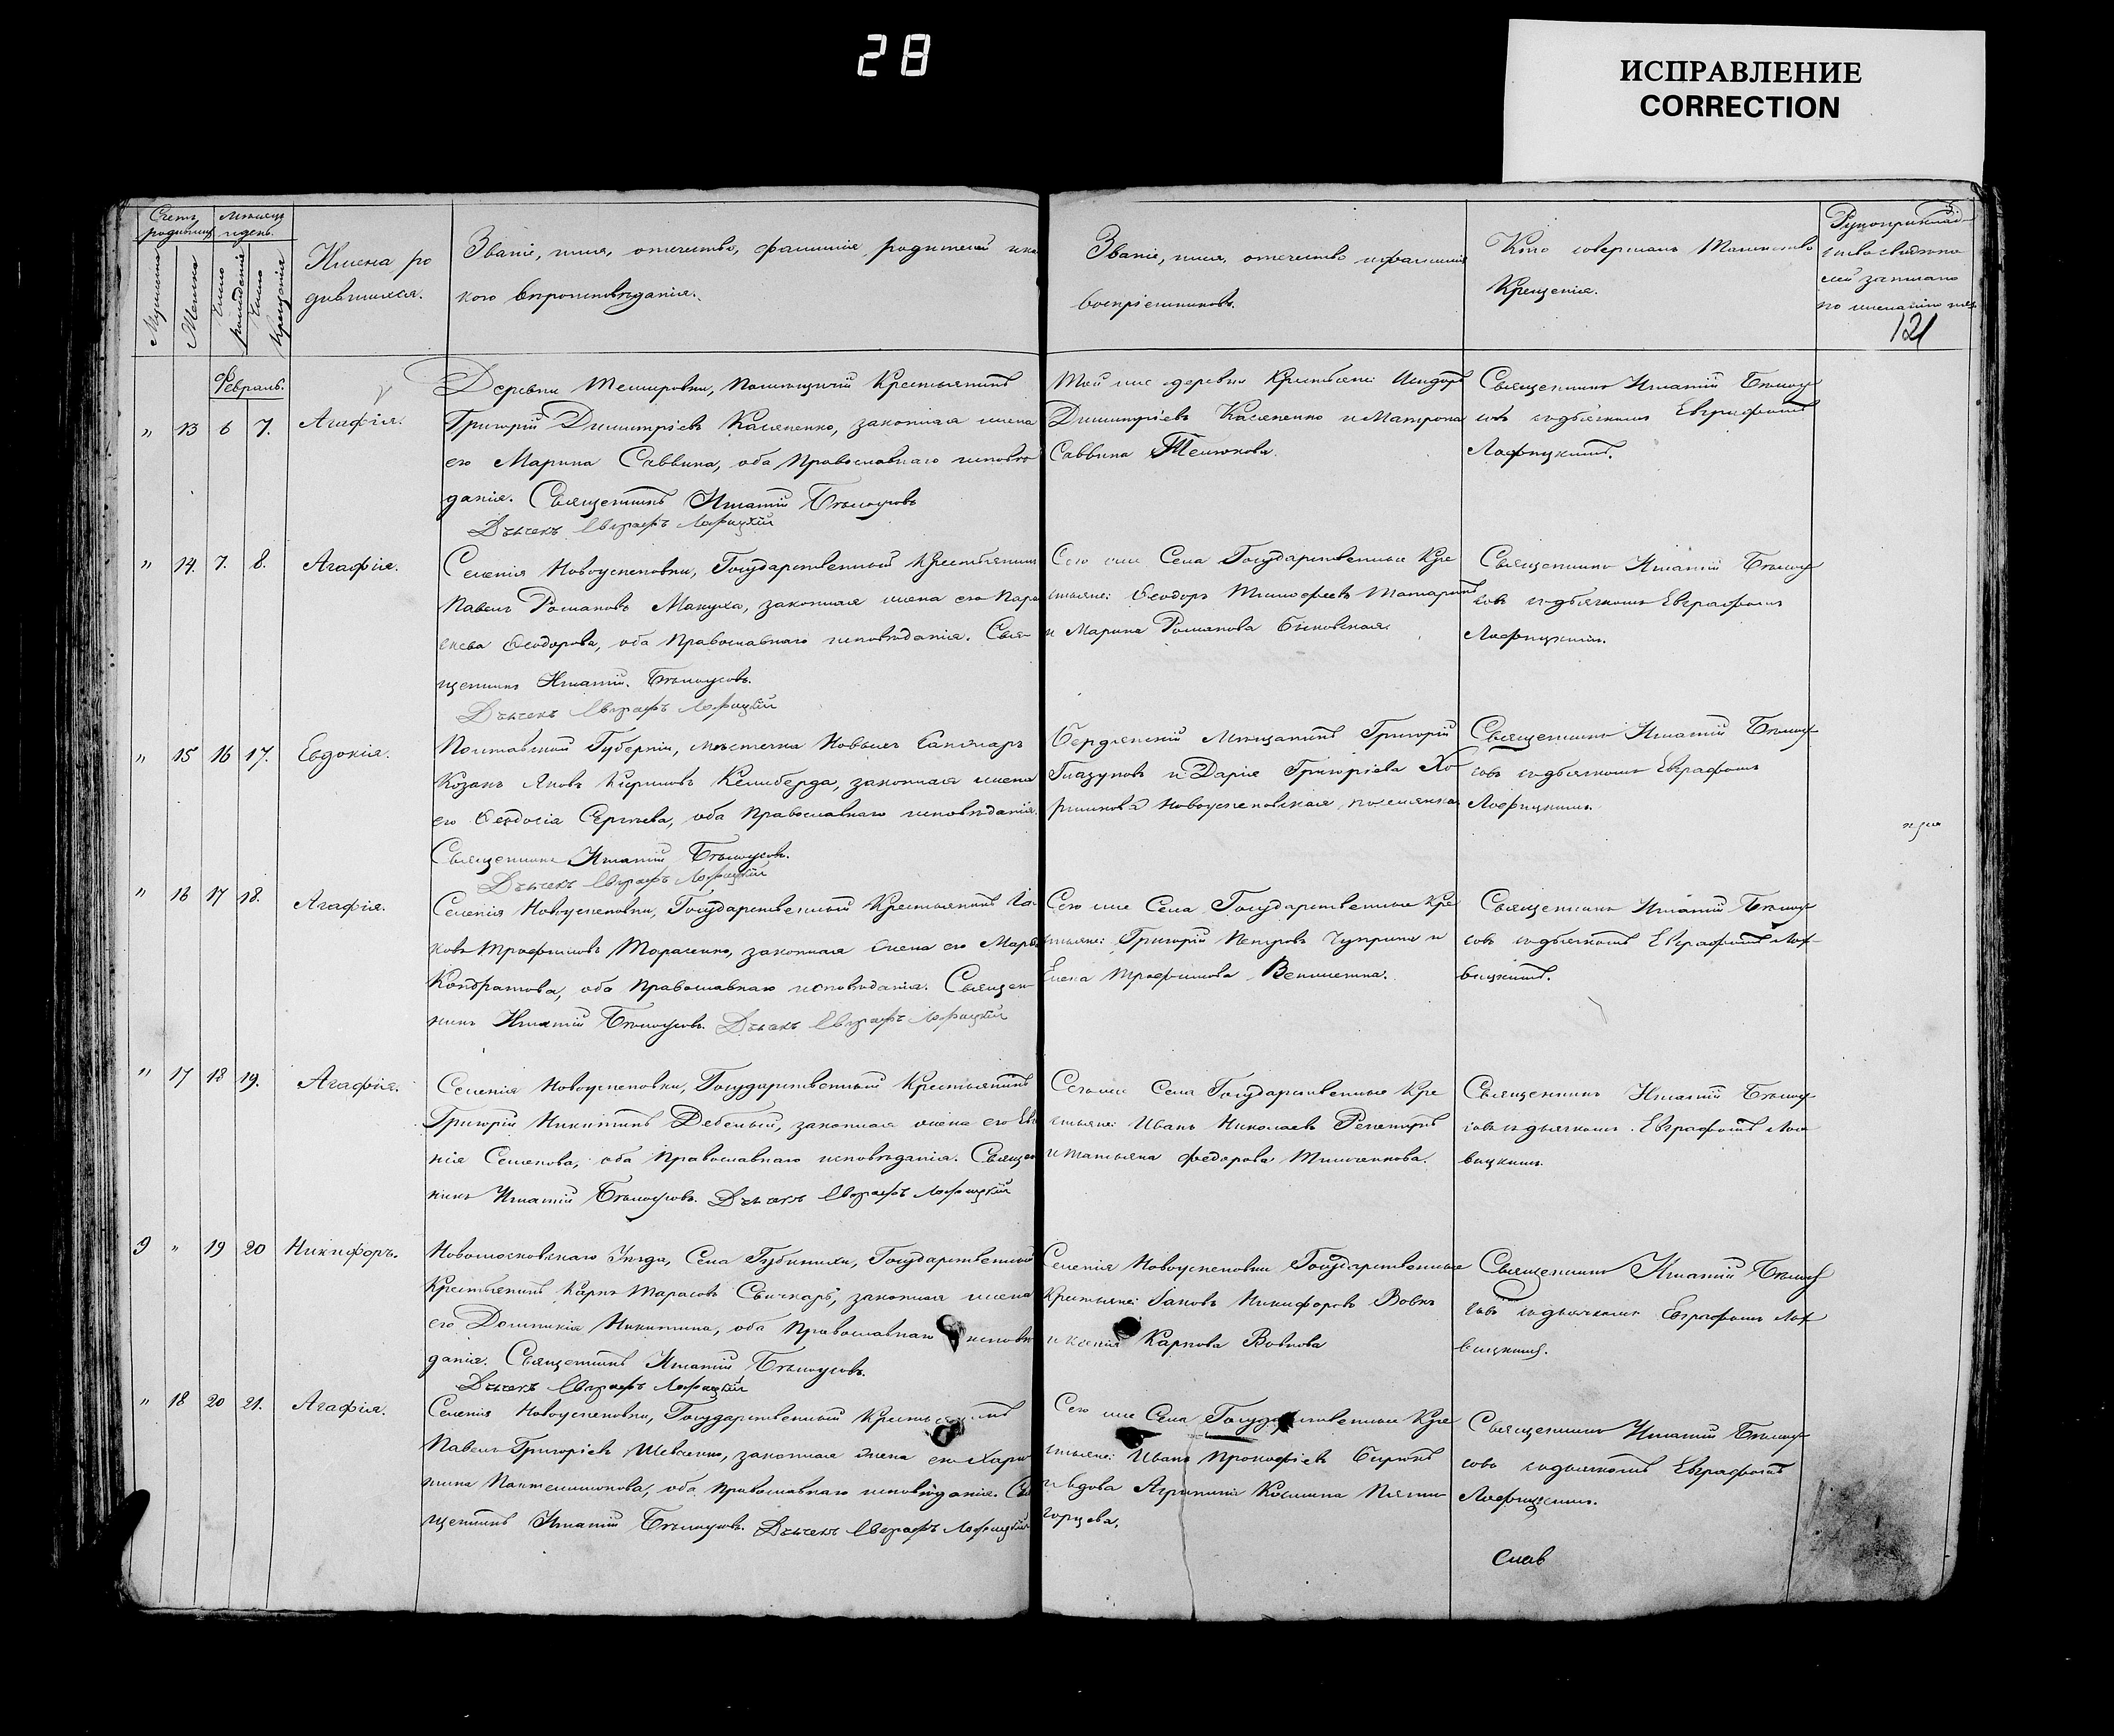 28
ИСПРАВЛЕНИЕ
CORRECTION
Счетъ родившихся
Мѣсяцъ и день.
Мужеска
Женска
Число рожденія
Число крещенія
Имена ро
дившихся.
Званіе, имя, отечество, фамилія родителей и ка
кого вѣроисповѣданія.
Званіе, имя, отечество и фамилія
воспріемниковъ.
Кто совершалъ Таинство
Крещенія.
Рукоприклад-
ство свидѣте
лей записано
по желанію
121
Февраль.
„ 13 6 7. Агафія.
Деревни Темировки, Помѣщичій Крестьянинъ
Григорій Димитріевъ Касяненко, законная жена
его Марина Саввина, оба Православнаго исповѣ
данія. Священникъ Игнатій Бѣлоусовъ
Дьячекъ Евграфъ Лофицкій
Той же деревни Крестьяне: Исидоръ
Димитріевъ Касяненко и Матрона
Саввина
Священникъ Игнатій Бѣлоу
совъ съ дьячкомъ Евграфомъ
Лофицкимъ.
„ 14. 7. 8. Агафія.
Селенія Новоуспеновки, Государственный Крестьянинъ
Павелъ Романовъ Макуха, законная жена его Пара
скева Ѳеодорова, оба Православнаго исповѣданія. Свя-
щенникъ Игнатій Бѣлоусовъ.
Дьячекъ Евграфъ Лофицкій
Сего же Села Государственные Кре
стьяне: Ѳеодоръ Тимофеевъ Татаринъ
и Марина Романова Быковская.
Священникъ Игнатій Бѣлоу
совъ съ дьячкомъ Евграфомъ
Лофицкимъ.
„ 15 16 17. Евдокія.
Полтавской Губерніи, мѣстечка Новыхъ Санжаръ
Козакъ Яковъ Кириловъ Келеберда, законная жена
его Ѳеодосія Сергѣева, оба Православнаго исповѣданія.
Священникъ Игнатій Бѣлоусовъ.
Дьячекъ Евграфъ Лофицкій
Бердянскій Мѣщанинъ Григорій
Глазуновъ и Дарія Григоріева Хо
рошкова Новоуспеновская поселянка
Священникъ Игнатій Бѣлоу
совъ съ дьячкомъ Евграфомъ
Лофицкимъ.
„ 16 17 18. Агафія.
Селенія Новоуспеновки, Государственный Крестьянинъ Іа-
ковъ Трофимовъ Тарасенко, законная жена его Марѳа
Кондратова, оба Православнаго исповѣданія. Священ-
никъ Игнатій Бѣлоусовъ. Дьячекъ Евграфъ Лофицкій
Сего же Села Государственные Кре
стьяне: Григорій Петровъ Чуприна и
Елена Трофимова
Священникъ Игнатій Бѣлоу
совъ съ дьячкомъ Евграфомъ Лоф-
вицкимъ.
„ 17 18 19. Агафія.
Селенія Новоуспеновки, Государственный Крестьянинъ
Григорій Никитинъ Дебелый, законная жена его Евге
нія Семенова, оба Православнаго исповѣданія. Священ
никъ Игнатій Бѣлоусовъ. Дьячекъ Евграфъ Лофицкій
Сего же Села Государственные Кре
стьяне: Иванъ Николаевъ
и Татьяна Федорова Тимченкова.
Священникъ Игнатій Бѣлоу
совъ съ дьячкомъ Евграфомъ Лоф
вицкимъ.
9 „ 19 20 Никифоръ.
Новомосковскаго Уѣзда, Села Губинихи, Государственный
Крестьянинъ Карпъ Тарасовъ Свичкаръ, законная жена
его Домникія Никитина, оба Православнаго исповѣ
данія. Священникъ Игнатій Бѣлоусовъ.
Дьячекъ Евграфъ Лофицкій
Селенія Новоуспеновки Государственные
Крестьяне: Іаковъ Никифоровъ Вовкъ
и Ксенія Карпова Вовкова
Священникъ Игнатій Бѣлоу
совъ съ дьячкомъ Евграфомъ Лоф
вицкимъ.
„ 18 20 21. Агафія.
Селенія Новоуспеновки, Государственный Крестьянинъ
Павелъ Григоріевъ Шевченко, законная жена его Хари
тина Пантелимонова, оба Православнаго исповѣданія. Свя
щенникъ Игнатій Бѣлоусовъ. Дьячекъ Евграфъ Лофицкій
Сего же Села Государственные Кре
стьяне: Иванъ Прокофіевъ Бирюкъ
и вдова Агрипина Косьмина Пяти
горцева.
Священникъ Игнатій Бѣлоу
совъ съ дьячкомъ Евграфомъ
Лофицкимъ.